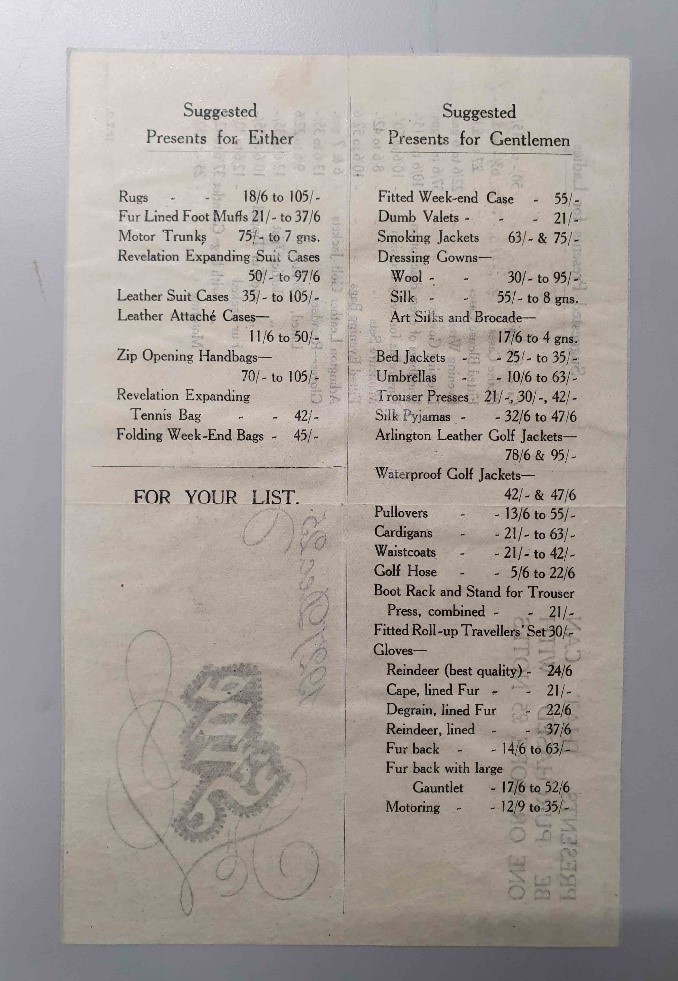 Suggested
Presents for Either
Rugs - - 18/6 to 105/-
Fur Lined Foot Muffs 21/- to 37/6
Motor Trunks 75/- to 7 gns.
Revelation Expanding Suit Cases
50/- to 97/6
Leather Suit Cases 35/- to 105/-
Leather Attaché Cases—
11/6 to 50/-
Zip Opening Handbags—
70/- to 105/-
Revelation Expanding
Tennis Bag - - 42/-
Folding Week-End Bags - 45/-
FOR YOUR LIST.
Suggested
Presents for Gentlemen
Fitted Week-end Case - 55/-
Dumb Valets - - - 21/-
Smoking Jackets 63/- & 75/-
Dressing Gowns—
Wool - - 30/- to 95/-
Silk - - 55/- to 8 gns.
Art Silks and Brocade—
17/6 to 4 gns.
Bed Jackets - - 25/- to 35/-
Umbrellas - - 10/6 to 63/-
Trouser Presses 21/-, 30/-, 42/-
Silk Pyjamas - - 32/6 to 47/6
Arlington Leather Golf Jackets—
78/6 & 95/-
Waterproof Golf Jackets—
42/- & 47/6
Pullovers - - 13/6 to 55/-
Cardigans - - 21/- to 63/-
Waistcoats - - 21/- to 42/-
Golf Hose - - 5/6 to 22/6
Boot Rack and Stand for Trouser
Press, combined - - 21/-
Fitted Roll-up Travellers' Set 30/-
Gloves—
Reindeer (best quality) - 24/6
Cape, lined Fur - - 21/-
Degrain, lined Fur - 22/6
Reindeer, lined - - 37/6
Fur back - - 14/6 to 63/-
Fur back with large
Gauntlet - 17/6 to 52/6
Motoring - - 12/9 to 35/-